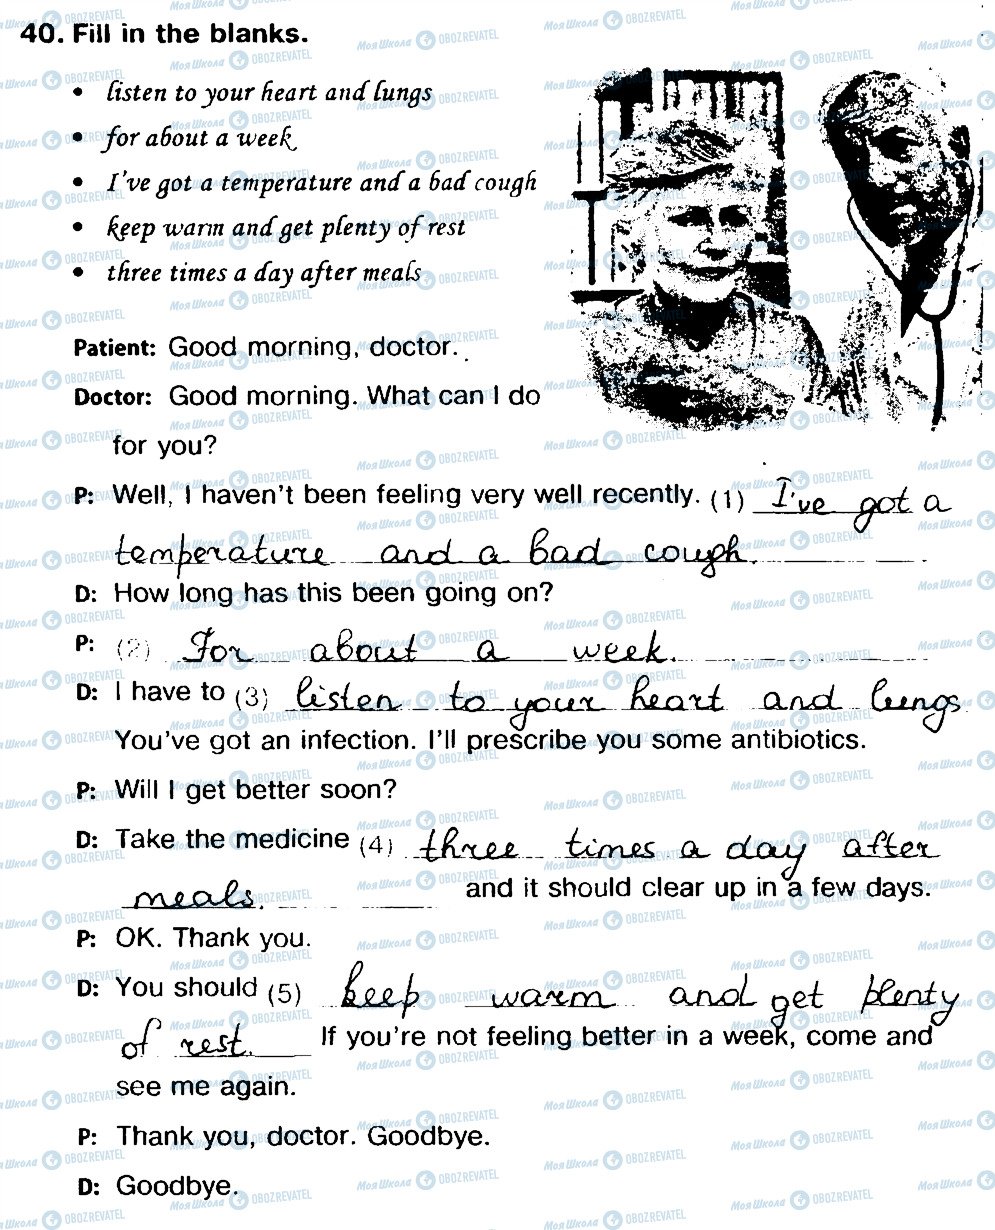 40. Fill in the blanks.
• listen to your heart and lungs
• for about a week
• I've got a temperature and a bad cough
• keep warm and get plenty of rest
• three times a day after meals
Patient: Good morning, doctor.
Doctor: Good morning. What can I do
for you?
P: Well, I haven't been feeling very well recently. (1) I've got a
temperature and a bad cough.
D: How long has this been going on?
P: (2) For about a week.
D: I have to (3) listen to your heart and lungs.
You've got an infection. I'll prescribe you some antibiotics.
P: Will I get better soon?
D: Take the medicine (4) three times a day after
meals. and it should clear up in a few days.
P: OK. Thank you.
D: You should (5) keep warm and get plenty
of rest. If you're not feeling better in a week, come and
see me again.
P: Thank you, doctor. Goodbye.
D: Goodbye.
Моя Школа OBOZREVATEL